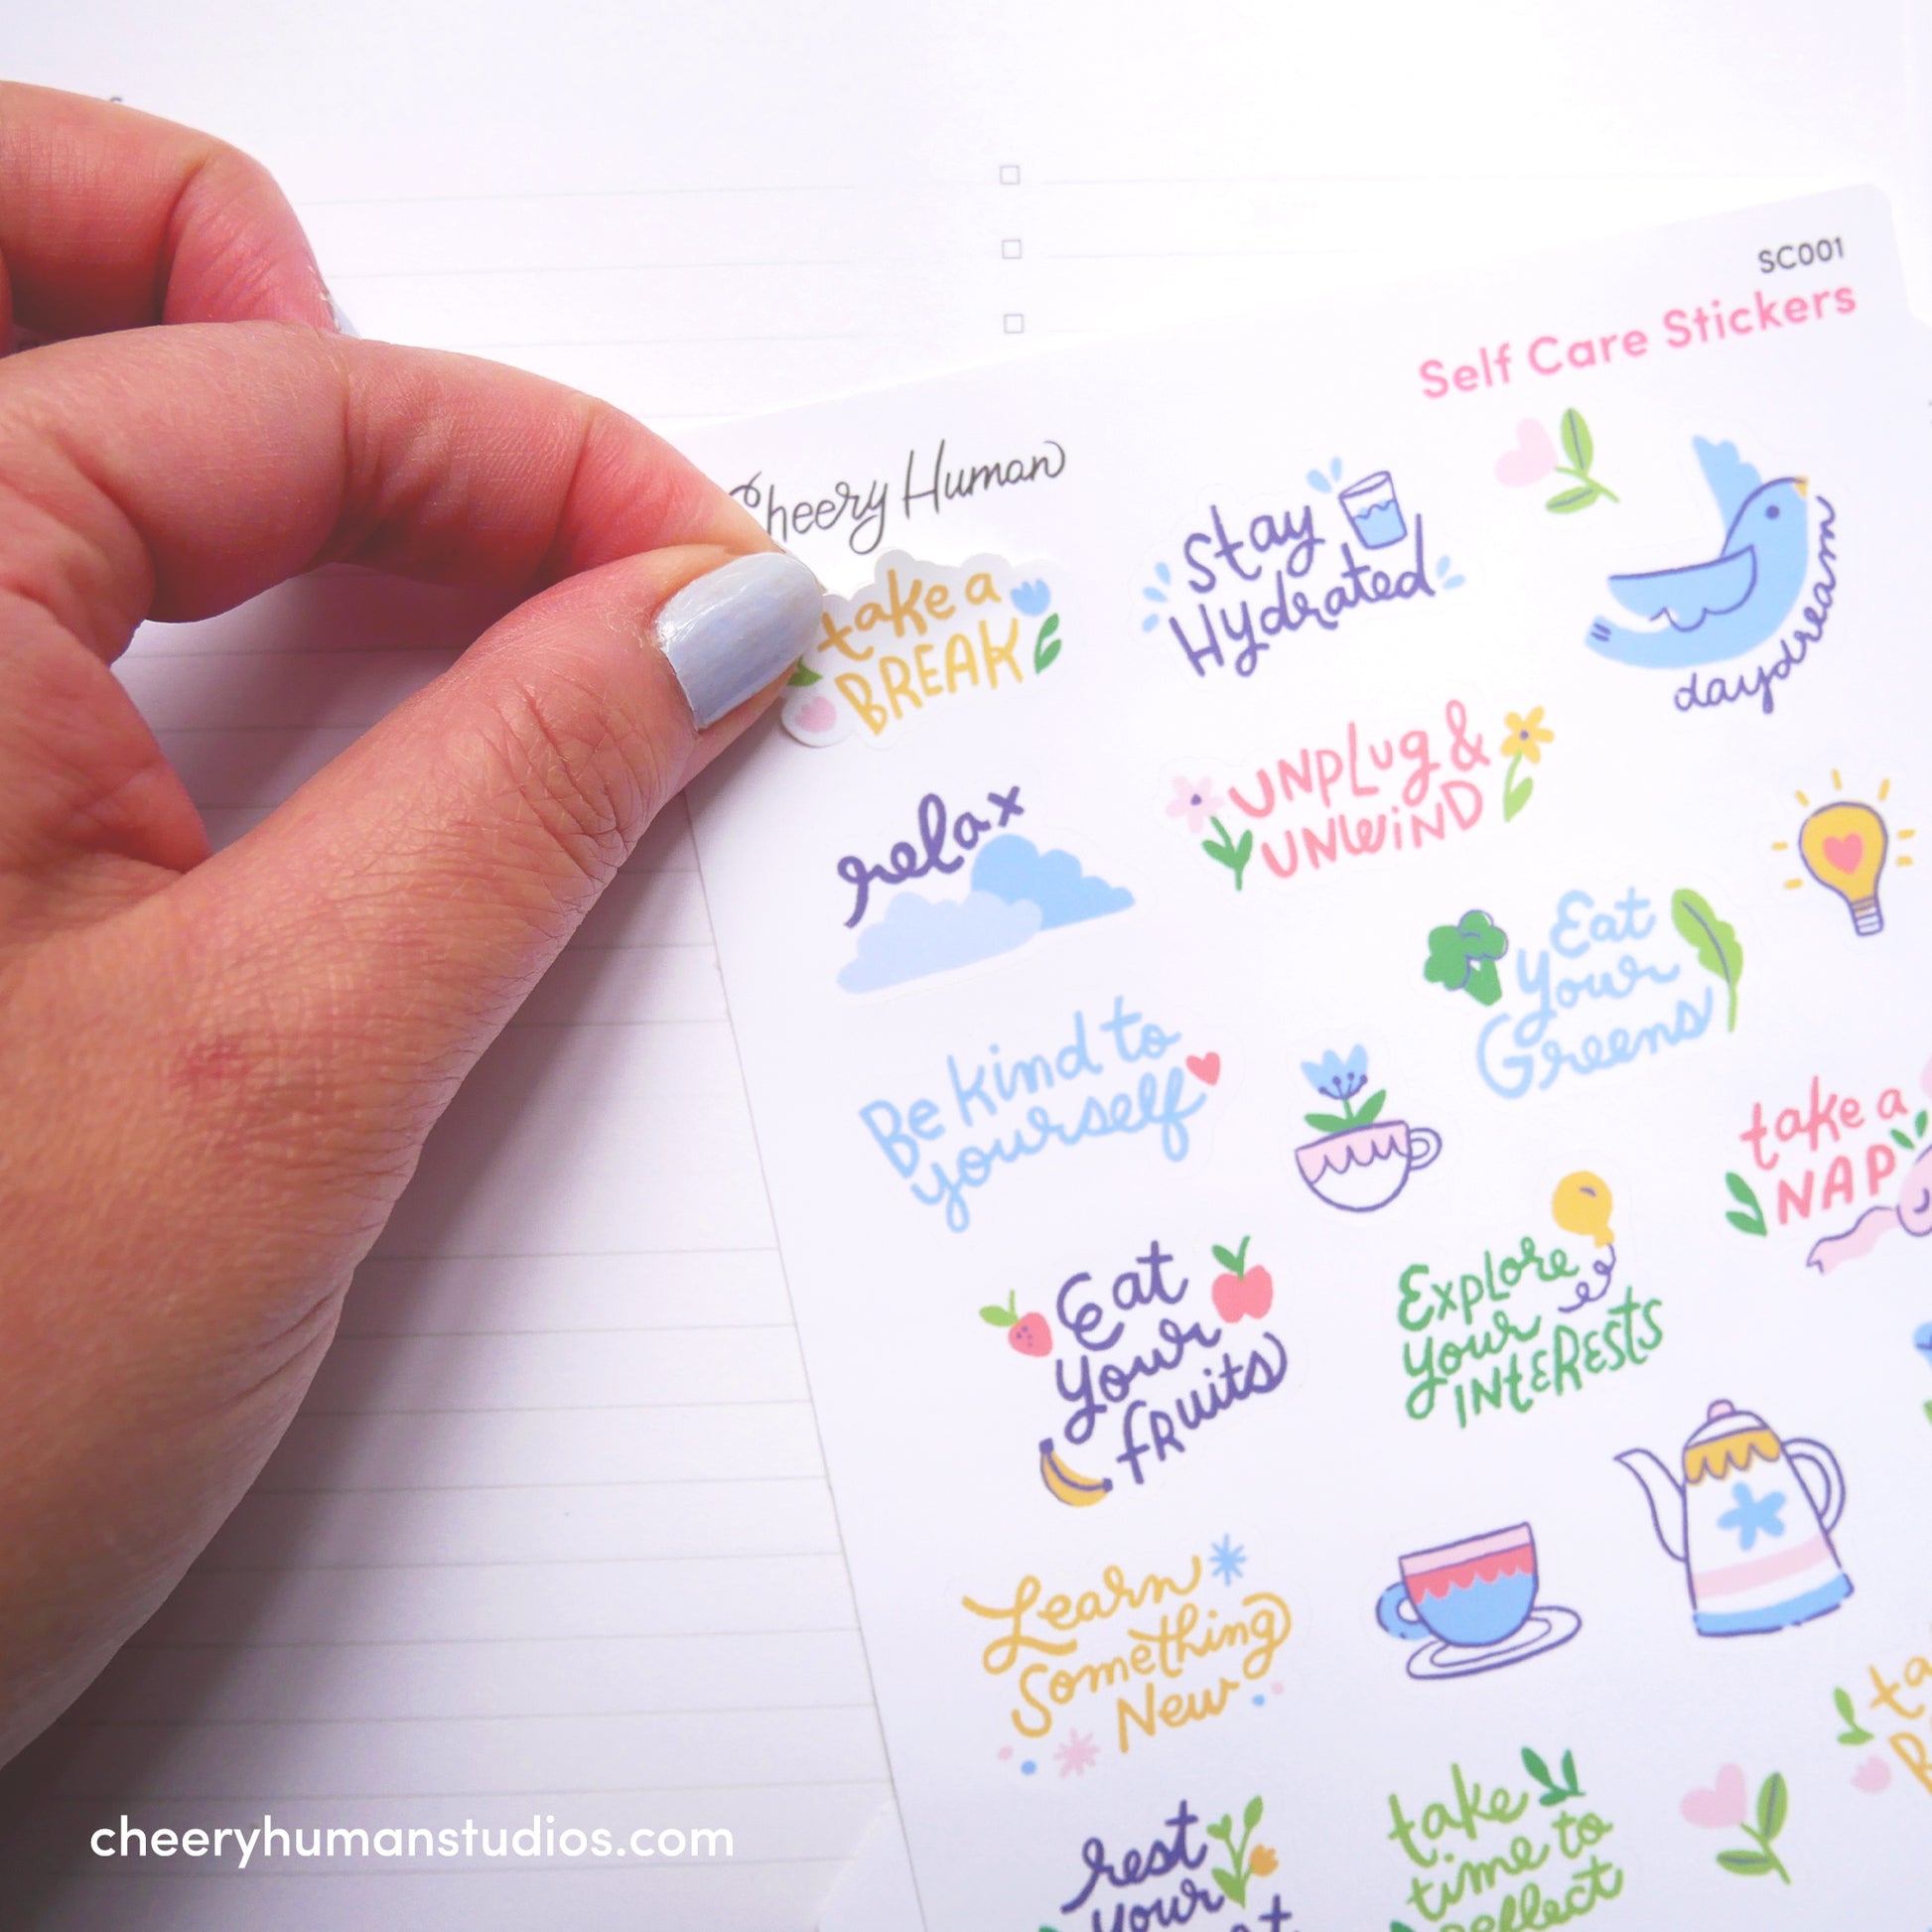 SC001
Self Care Stickers
Cheery Human
take a
BREAK
Stay
Hydrated
daydream
relax
UNPLUG &
UNWIND
Eat
Your
Greens
Be kind to
yourself
take a
NAP
Eat
Your
fruits
Explore
your
INTERESTS
Learn
Something
New
rest
your
take
time to
reflect
cheeryhumanstudios.com